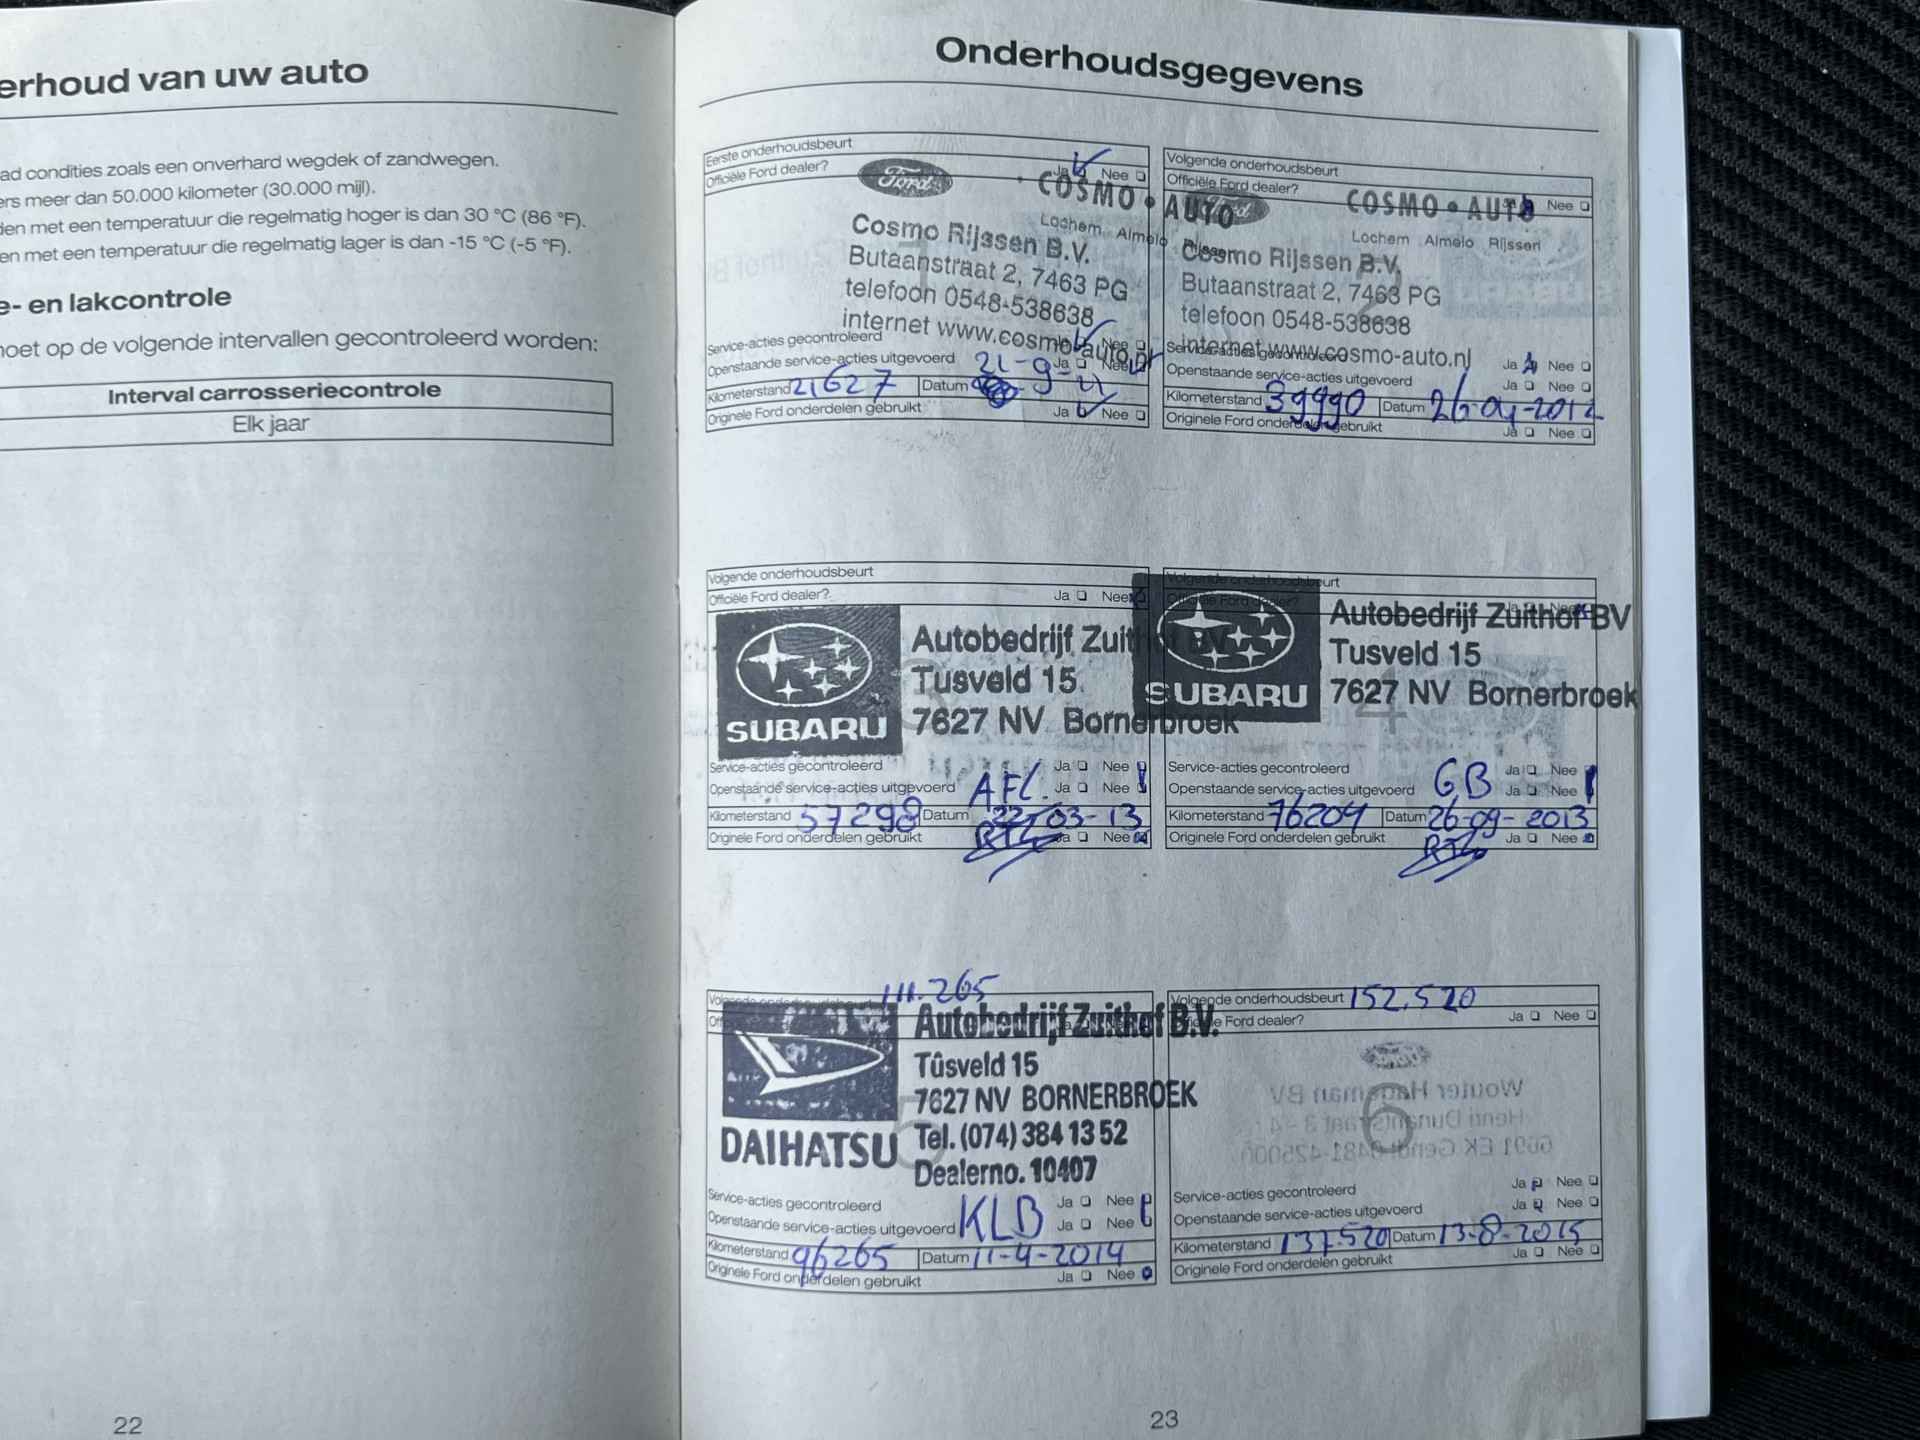 erhoud van uw auto
ad condities zoals een onverhard wegdek of zandwegen.
ers meer dan 50.000 kilometer (30.000 mijl).
den met een temperatuur die regelmatig hoger is dan 30 °C (86 °F).
en met een temperatuur die regelmatig lager is dan -15 °C (-5 °F).
e- en lakcontrole
noet op de volgende intervallen gecontroleerd worden:
Interval carrosseriecontrole
Elk jaar
22
Onderhoudsgegevens
Eerste onderhoudsbeurt
Officiële Ford dealer? Ja Nee
Ford COSMO • AUTO
Lochem Almelo Rijssen
Cosmo Rijssen B.V.
Butaanstraat 2, 7463 PG
telefoon 0548-538638
internet www.cosmo-auto.nl
Service-acties gecontroleerd Ja Nee
Openstaande service-acties uitgevoerd Ja Nee
Kilometerstand 21627 Datum 21-9-11
Originele Ford onderdelen gebruikt Ja Nee
Volgende onderhoudsbeurt
Officiële Ford dealer? Nee
Ford COSMO • AUTO
Lochem Almelo Rijssen
Cosmo Rijssen B.V.
Butaanstraat 2, 7463 PG
telefoon 0548-538638
internet www.cosmo-auto.nl
Service-acties gecontroleerd Ja Nee
Openstaande service-acties uitgevoerd Ja Nee
Kilometerstand 39990 Datum 26-04-2012
Originele Ford onderdelen gebruikt Ja Nee
Volgende onderhoudsbeurt
Officiële Ford dealer? Ja Nee
Autobedrijf Zuithof BV
Tusveld 15
SUBARU 7627 NV Bornerbroek
Service-acties gecontroleerd Ja Nee
Openstaande service-acties uitgevoerd AFL. Ja Nee
Kilometerstand 57298 Datum 22-03-13
Originele Ford onderdelen gebruikt Ja Nee
Volgende onderhoudsbeurt
Officiële Ford dealer? Ja Nee
Autobedrijf Zuithof BV
Tusveld 15
SUBARU 7627 NV Bornerbroek
4
Service-acties gecontroleerd Ja Nee
Openstaande service-acties uitgevoerd GB Ja Nee
Kilometerstand 76204 Datum 26-09-2013
Originele Ford onderdelen gebruikt Ja Nee
Volgende onderhoudsbeurt 111.265
Autobedrijf Zuithof B.V.
Tûsveld 15
7627 NV BORNERBROEK
DAIHATSU Tel. (074) 384 13 52
Dealerno. 10407
5
Service-acties gecontroleerd Ja Nee
Openstaande service-acties uitgevoerd KLB Ja Nee
Kilometerstand 96265 Datum 11-4-2014
Originele Ford onderdelen gebruikt Ja Nee
Volgende onderhoudsbeurt 152.520
Officiële Ford dealer? Ja Nee
6
Service-acties gecontroleerd Ja Nee
Openstaande service-acties uitgevoerd Ja Nee
Kilometerstand 137.520 Datum 13-8-2015
Originele Ford onderdelen gebruikt Ja Nee
23